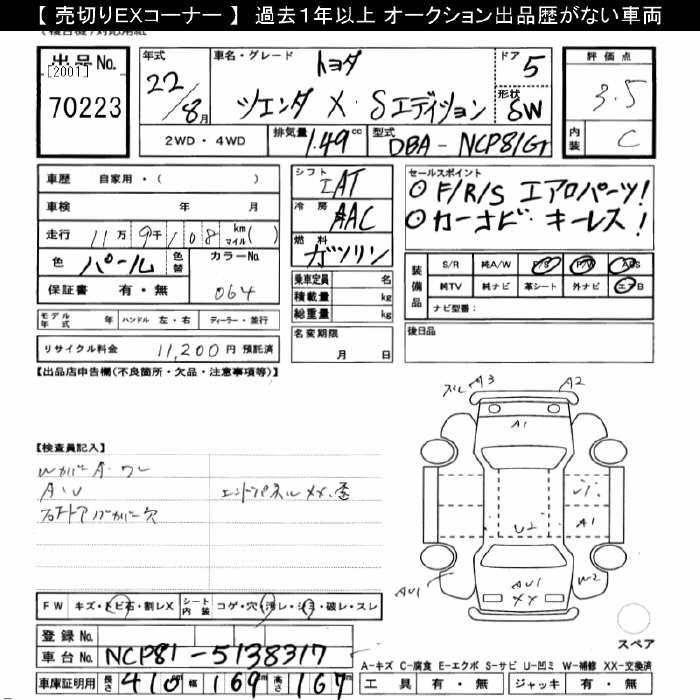 【 売切りEXコーナー 】 過去１年以上 オークション出品歴がない車両
出品No.
[2001]
70223
年式
22/8月
車名・グレード
トヨタ
シエンタ X・Sエディション
ドア 5
形状 SW
評価点
3.5
内装 C
2WD・4WD
排気量 1.49 cc
型式 DBA-NCP81G
車歴 自家用・( )
車検 年 月
走行 11万 9千 108 km マイル ( )
色 パール 色替
カラーNo. 064
保証書 有・無
モデル年式 年 ハンドル 左・右 ディーラー・並行
リサイクル料金 11,200円 預託済
シフト IAT
冷房 AAC
燃料 ガソリン
乗車定員 名
積載量 kg
総重量 kg
名変期限
月 日
セールスポイント
◎F/R/S エアロパーツ!
◎カーナビ・キーレス!
装備品
S/R 純A/W P/S P/W ABS
純TV 純ナビ 革シート 外ナビ エアB
ナビ型番:
後日品
【出品店申告欄(不良箇所・欠品・注意事項等)】
【検査員記入】
A・U
エンドパネルXX・歪
A3 A2
A1
U2
A1
W2
AU1
AU1
XY
FW キズ・トビ石・割レX シート内装 コゲ・穴・汚レ・シミ・破レ・スレ
登録No.
車台No. NCP81-5138317
車庫証明用 長さ 410cm 幅 169cm 高さ 167cm
スペア
A-キズ C-腐食 E-エクボ S-サビ U-凹ミ W-補修 XX-交換済
工具 有・無 ジャッキ 有・無